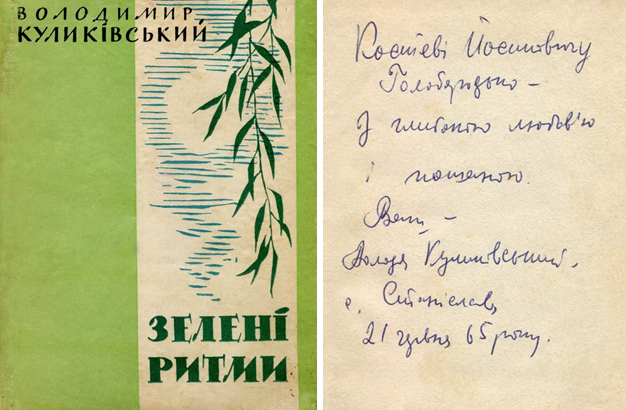 ВОЛОДИМИР
КУЛИКІВСЬКИЙ
ЗЕЛЕНІ
РИТМИ
Костеві Йосиповичу
З глибокою любов'ю
і пошаною.
Ваш –
Володя Куликівський.
21 65 року.